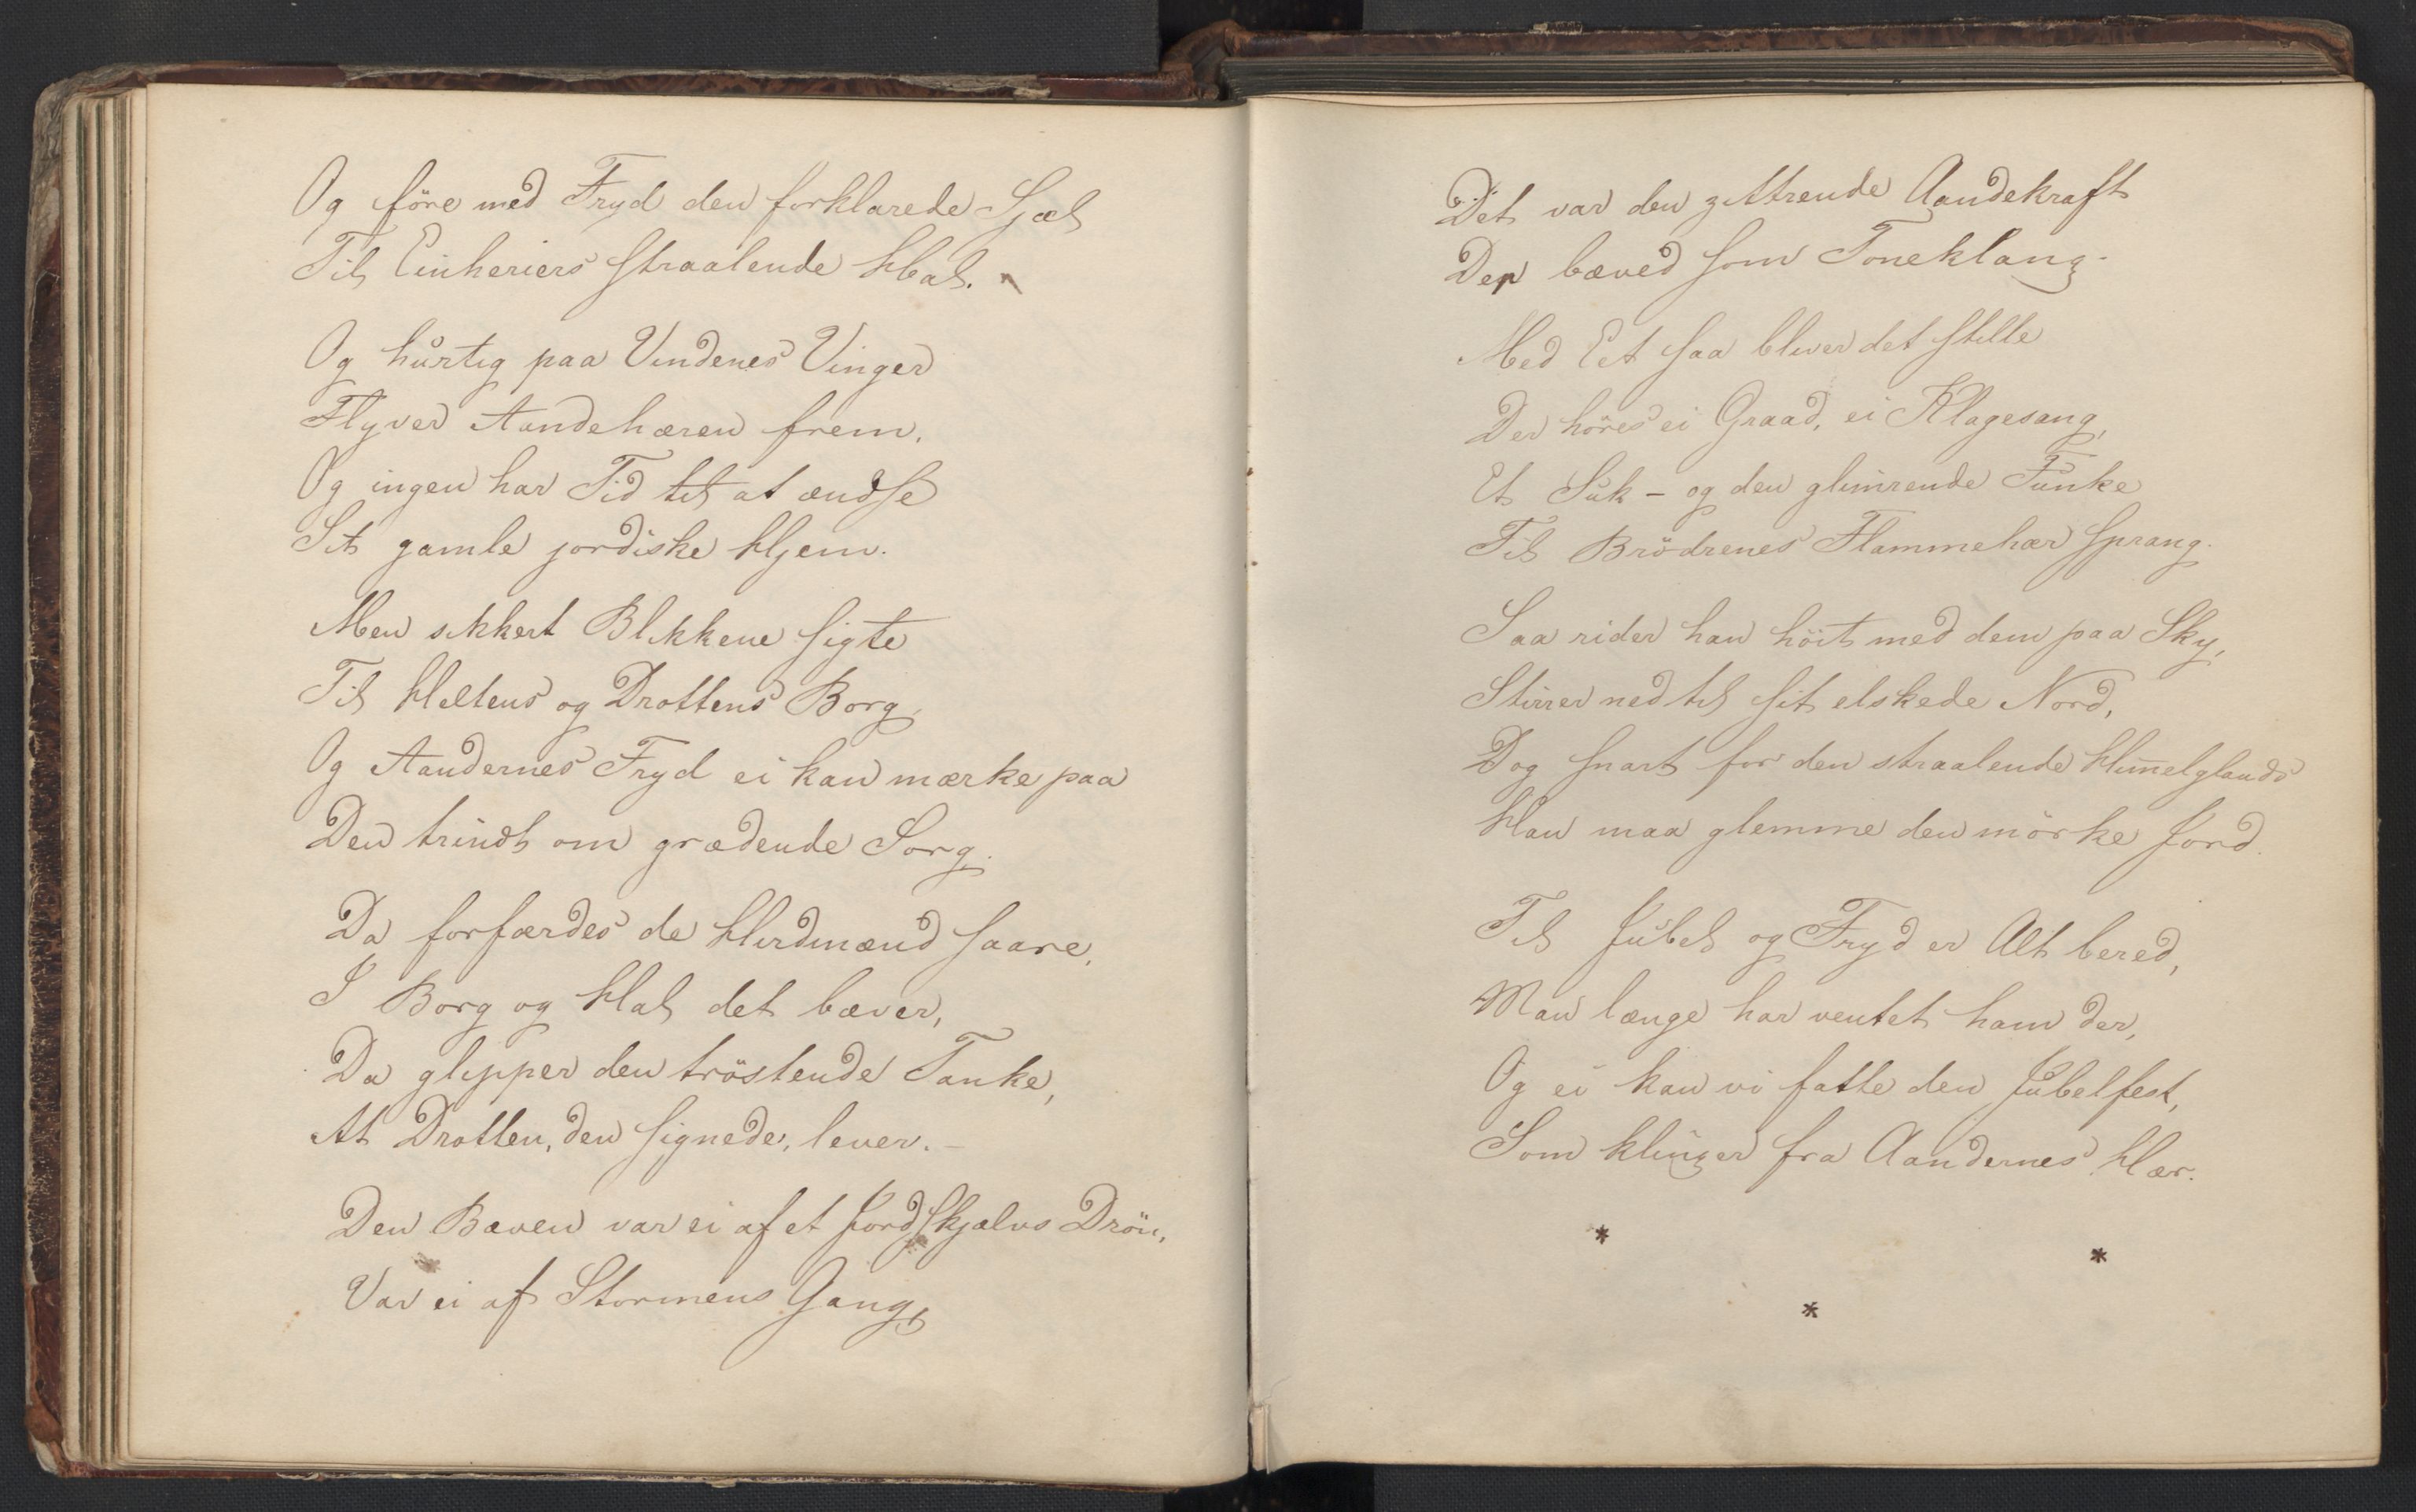 Og före med Fryd den forklarede Sjæl
Til Einheriers straalende Hal.
Og hurtig paa Vindenes Vinger
Flyver Aandehæren frem.
Og ingen har Tid til at ændse
Sit gamle jordiske Hjem.
Men sikkert Blikkene sigte
Til Heltens og Drottens Borg,
Og Aandernes Fryd ei kan mærke paa
Den trindt om grædende Sorg.
Da forfærdes de Hirdmænd saare,
I Borg og Hal det bæver,
Da glipper den tröstende Tanke,
At Drotten, den signede, lever. –
Den Bæven var ei af et Jordskjælvs Drön,
Var ei af Stormens Gang,
Det var den zittrende Aandekraft
Der bæved som Toneklang.
Med Eet saa bliver det stille
Der höres ei Graad, ei Klagesang,
Et Suk – og den glimrende Funke
Til Brödrenes Flammehær sprang.
Saa rider han höit med dem paa Sky,
Stirrer ned til sit elskede Nord,
Dog snart for den straalende Him̄elglands
Han maa glemme den mörke Jord.
Til Jubel og Fryd er Alt bered,
Man længe har ventet ham der,
Og ei kan vi fatte den Jubelfest,
Som klinger fra Aandernes Hær.
* *
*